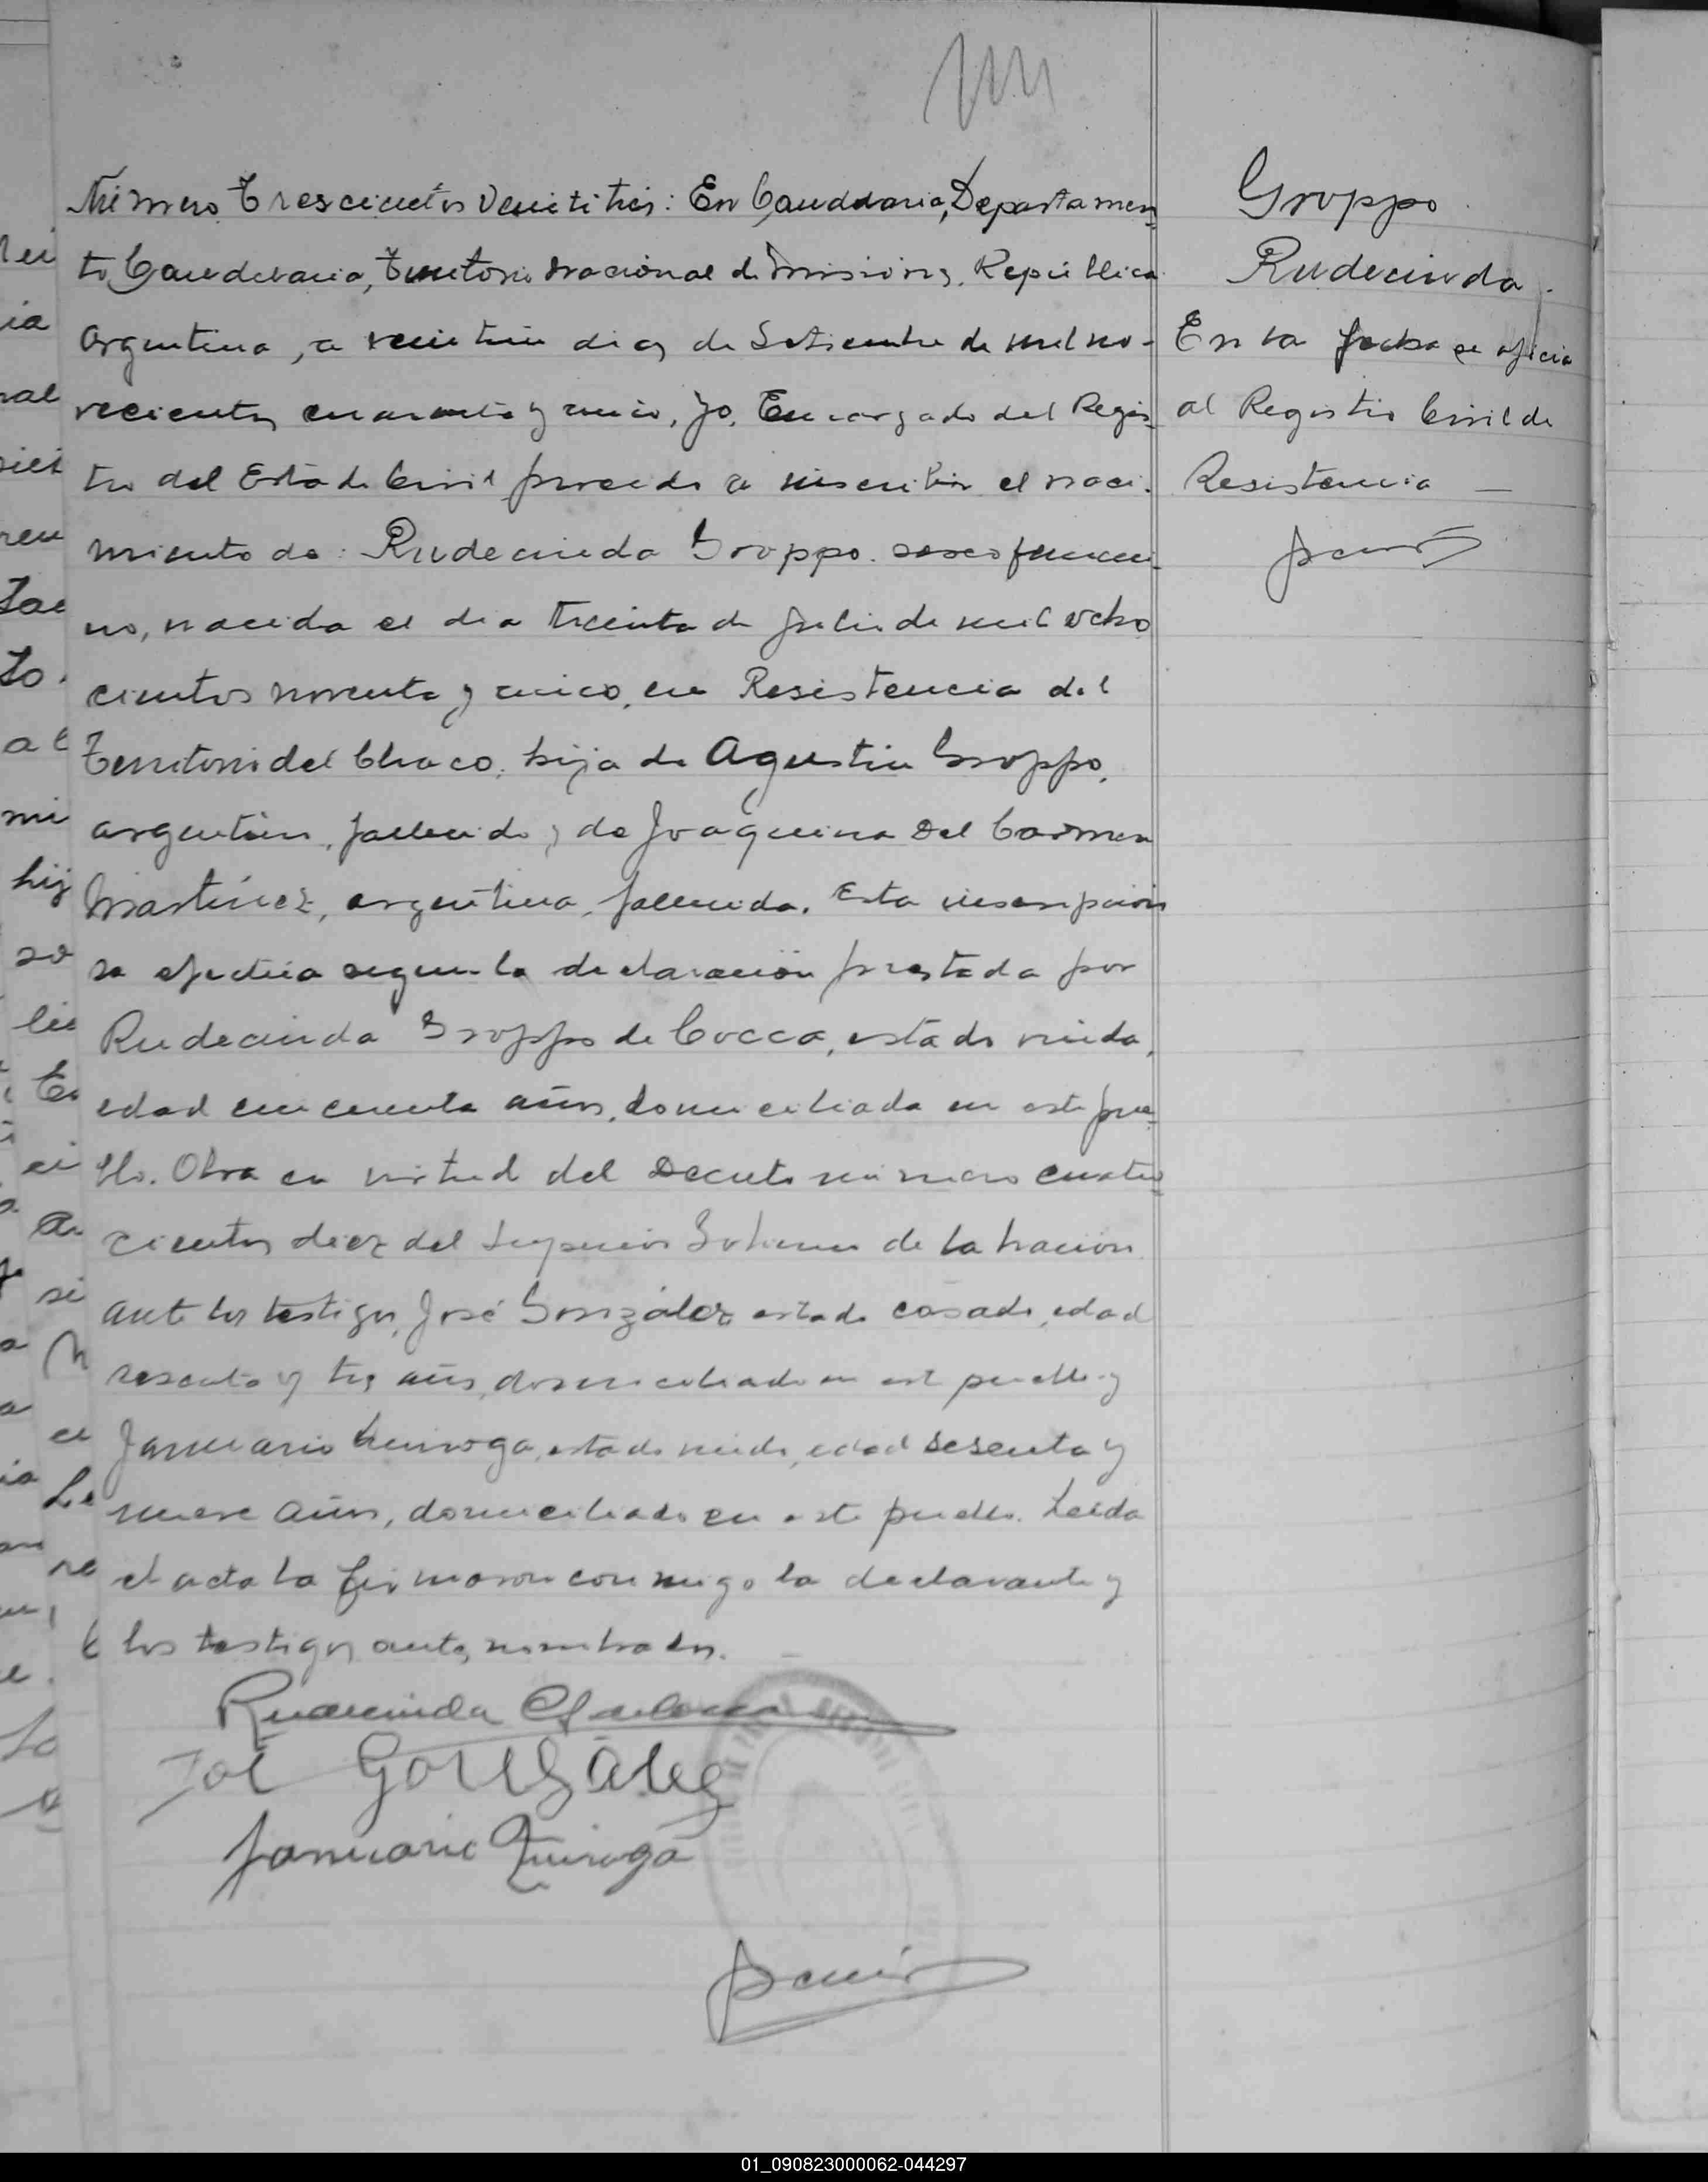 Número Trescientos Veintitrés: En Candelaria, Departamen
to Candelaria, Territorio Nacional de Misiones, República
Argentina, a veintitrés dias de Setiembre de mil no-
vecientos cuarenta y cinco, yo, Encargado del Regis
tro del Estado Civil procedo a inscribir el naci-
miento de: Rudecinda Groppo. sexo femeni-
no, nacida el dia treinta de Julio de mil ocho
cientos noventa y cinco, en Resistencia del
Territorio del Chaco, hija de Agustin Groppo,
argentino, fallecido y de Joaquina Del Carmen
Martínez, argentina, fallecida. Esta inscripción
se efectúa segun la declaración prestada por
Rudecinda Groppo de Cocca, estado viuda,
edad cincuenta años, domiciliada en este pue-
blo. Obra en virtud del Decreto número cuatro
cientos diez del Superior Gobierno de la Nación
ante los testigos, José González estado casado, edad
sesenta y tres años, domiciliado en este pueblo y
Januario Quiroga, estado viudo, edad sesenta y
nueve años, domiciliado en este pueblo. Leida
el acta la firmaron conmigo la declarante y
los testigos antes nombrados.
Rudecinda
José Gonsález
Januario Quiroga
Groppo
Rudecinda.
En la fecha se oficia
al Registro Civil de
Resistencia —
01_090823000062-044297